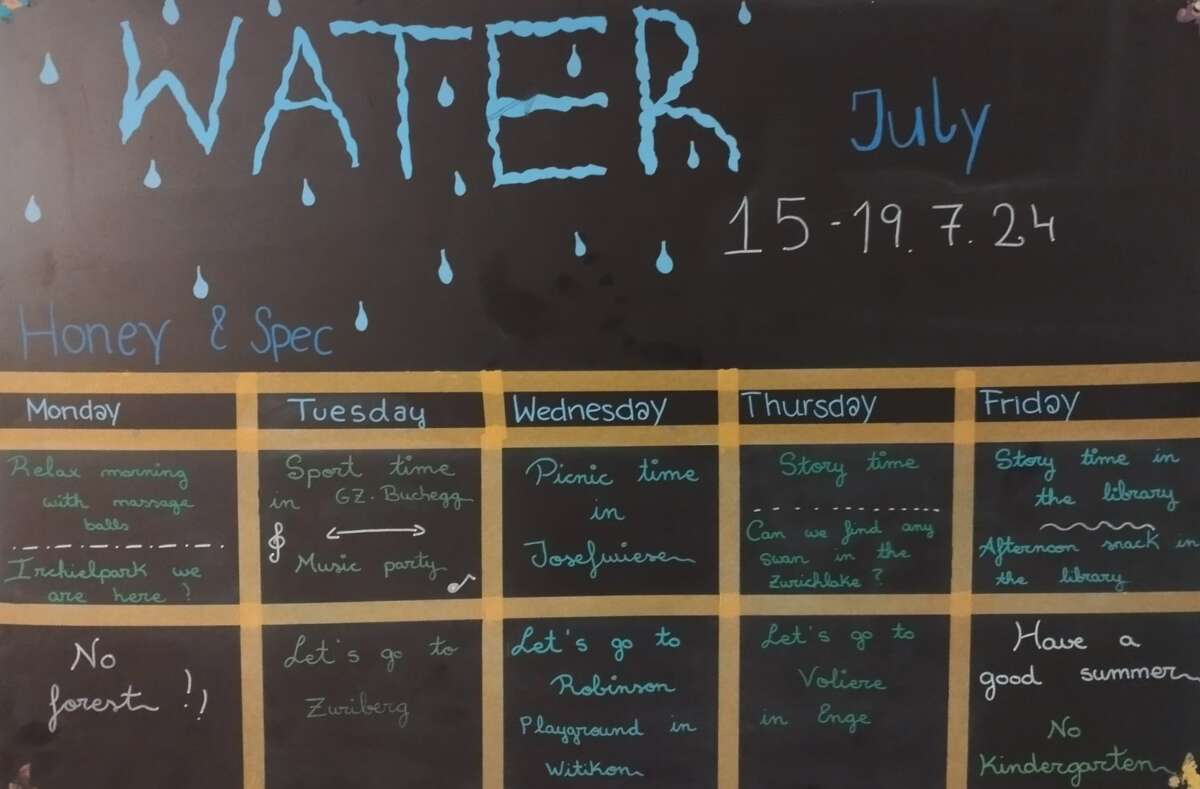 WATER
July
15-19.7.24
Honey & Spec
Monday
Tuesday
Wednesday
Thursday
Friday
Relax morning
with massage
balls
Irchielpark we
are here ?
Sport time
in GZ. Buchegg
Music party
Picnic time
in
Josefwiesen
Story time
Can we find any
swan in the
Zurichlake ?
Story time in
the library
Afternoon snack in
the library
No
forest !!
Let's go to
Zuriberg
Let's go to
Robinson
Playground in
Witikon
Let's go to
Voliere
in Enge
Have a
good summer
No
Kindergarten